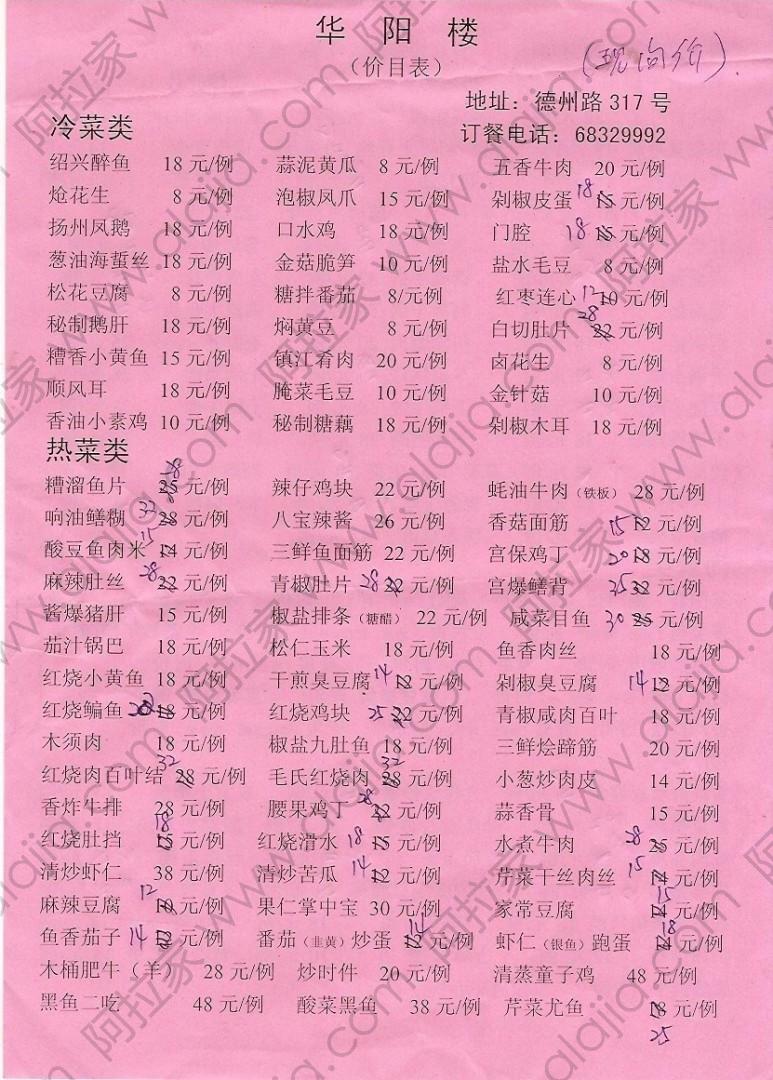 华阳楼
（价目表）
（现询价）.
地址：德州路 317 号
冷菜类
订餐电话：68329992
绍兴醉鱼 18 元/例 蒜泥黄瓜 8 元/例 五香牛肉 20 元/例
炝花生 8 元/例 泡椒凤爪 15 元/例 剁椒皮蛋 18 15 元/例
扬州风鹅 18 元/例 口水鸡 18 元/例 门腔 18 15 元/例
葱油海蜇丝 18 元/例 金菇脆笋 10 元/例 盐水毛豆 8 元/例
松花豆腐 8 元/例 糖拌番茄 8/元/例 红枣连心 12 10 元/例
秘制鹅肝 18 元/例 焖黄豆 8 元/例 白切肚片 28 22 元/例
糟香小黄鱼 15 元/例 镇江肴肉 20 元/例 卤花生 8 元/例
顺风耳 18 元/例 腌菜毛豆 10 元/例 金针菇 10 元/例
香油小素鸡 10 元/例 秘制糖藕 18 元/例 剁椒木耳 18 元/例
热菜类
糟溜鱼片 28 25 元/例 辣仔鸡块 22 元/例 蚝油牛肉（铁板）28 元/例
响油鳝糊 32 28 元/例 八宝辣酱 26 元/例 香菇面筋 15 12 元/例
酸豆鱼肉米 15 14 元/例 三鲜鱼面筋 22 元/例 宫保鸡丁 20 18 元/例
麻辣肚丝 28 22 元/例 青椒肚片 28 22 元/例 宫爆鳝背 35 32 元/例
酱爆猪肝 15 元/例 椒盐排条（糖醋）22 元/例 咸菜目鱼 30 25 元/例
茄汁锅巴 18 元/例 松仁玉米 18 元/例 鱼香肉丝 18 元/例
红烧小黄鱼 18 元/例 干煎臭豆腐 14 12 元/例 剁椒臭豆腐 14 12 元/例
红烧鳊鱼 18 元/例 红烧鸡块 25 22 元/例 青椒咸肉百叶 18 元/例
木须肉 18 元/例 椒盐九肚鱼 18 元/例 三鲜烩蹄筋 20 元/例
红烧肉百叶结 32 28 元/例 毛氏红烧肉 32 28 元/例 小葱炒肉皮 14 元/例
香炸牛排 28 元/例 腰果鸡丁 28 22 元/例 蒜香骨 15 元/例
红烧肚挡 18 15 元/例 红烧滑水 18 15 元/例 水煮牛肉 28 25 元/例
清炒虾仁 38 元/例 清炒苦瓜 14 12 元/例 芹菜干丝肉丝 15 元/例
麻辣豆腐 12 10 元/例 果仁掌中宝 30 元/例 家常豆腐 15 元/例
鱼香茄子 14 12 元/例 番茄（韭黄）炒蛋 14 12 元/例 虾仁（银鱼）跑蛋 18 元/例
木桶肥牛（羊） 28 元/例 炒时件 20 元/例 清蒸童子鸡 48 元/例
黑鱼二吃 48 元/例 酸菜黑鱼 38 元/例 芹菜尤鱼 18 元/例
25
阿拉家 www.alajia.com